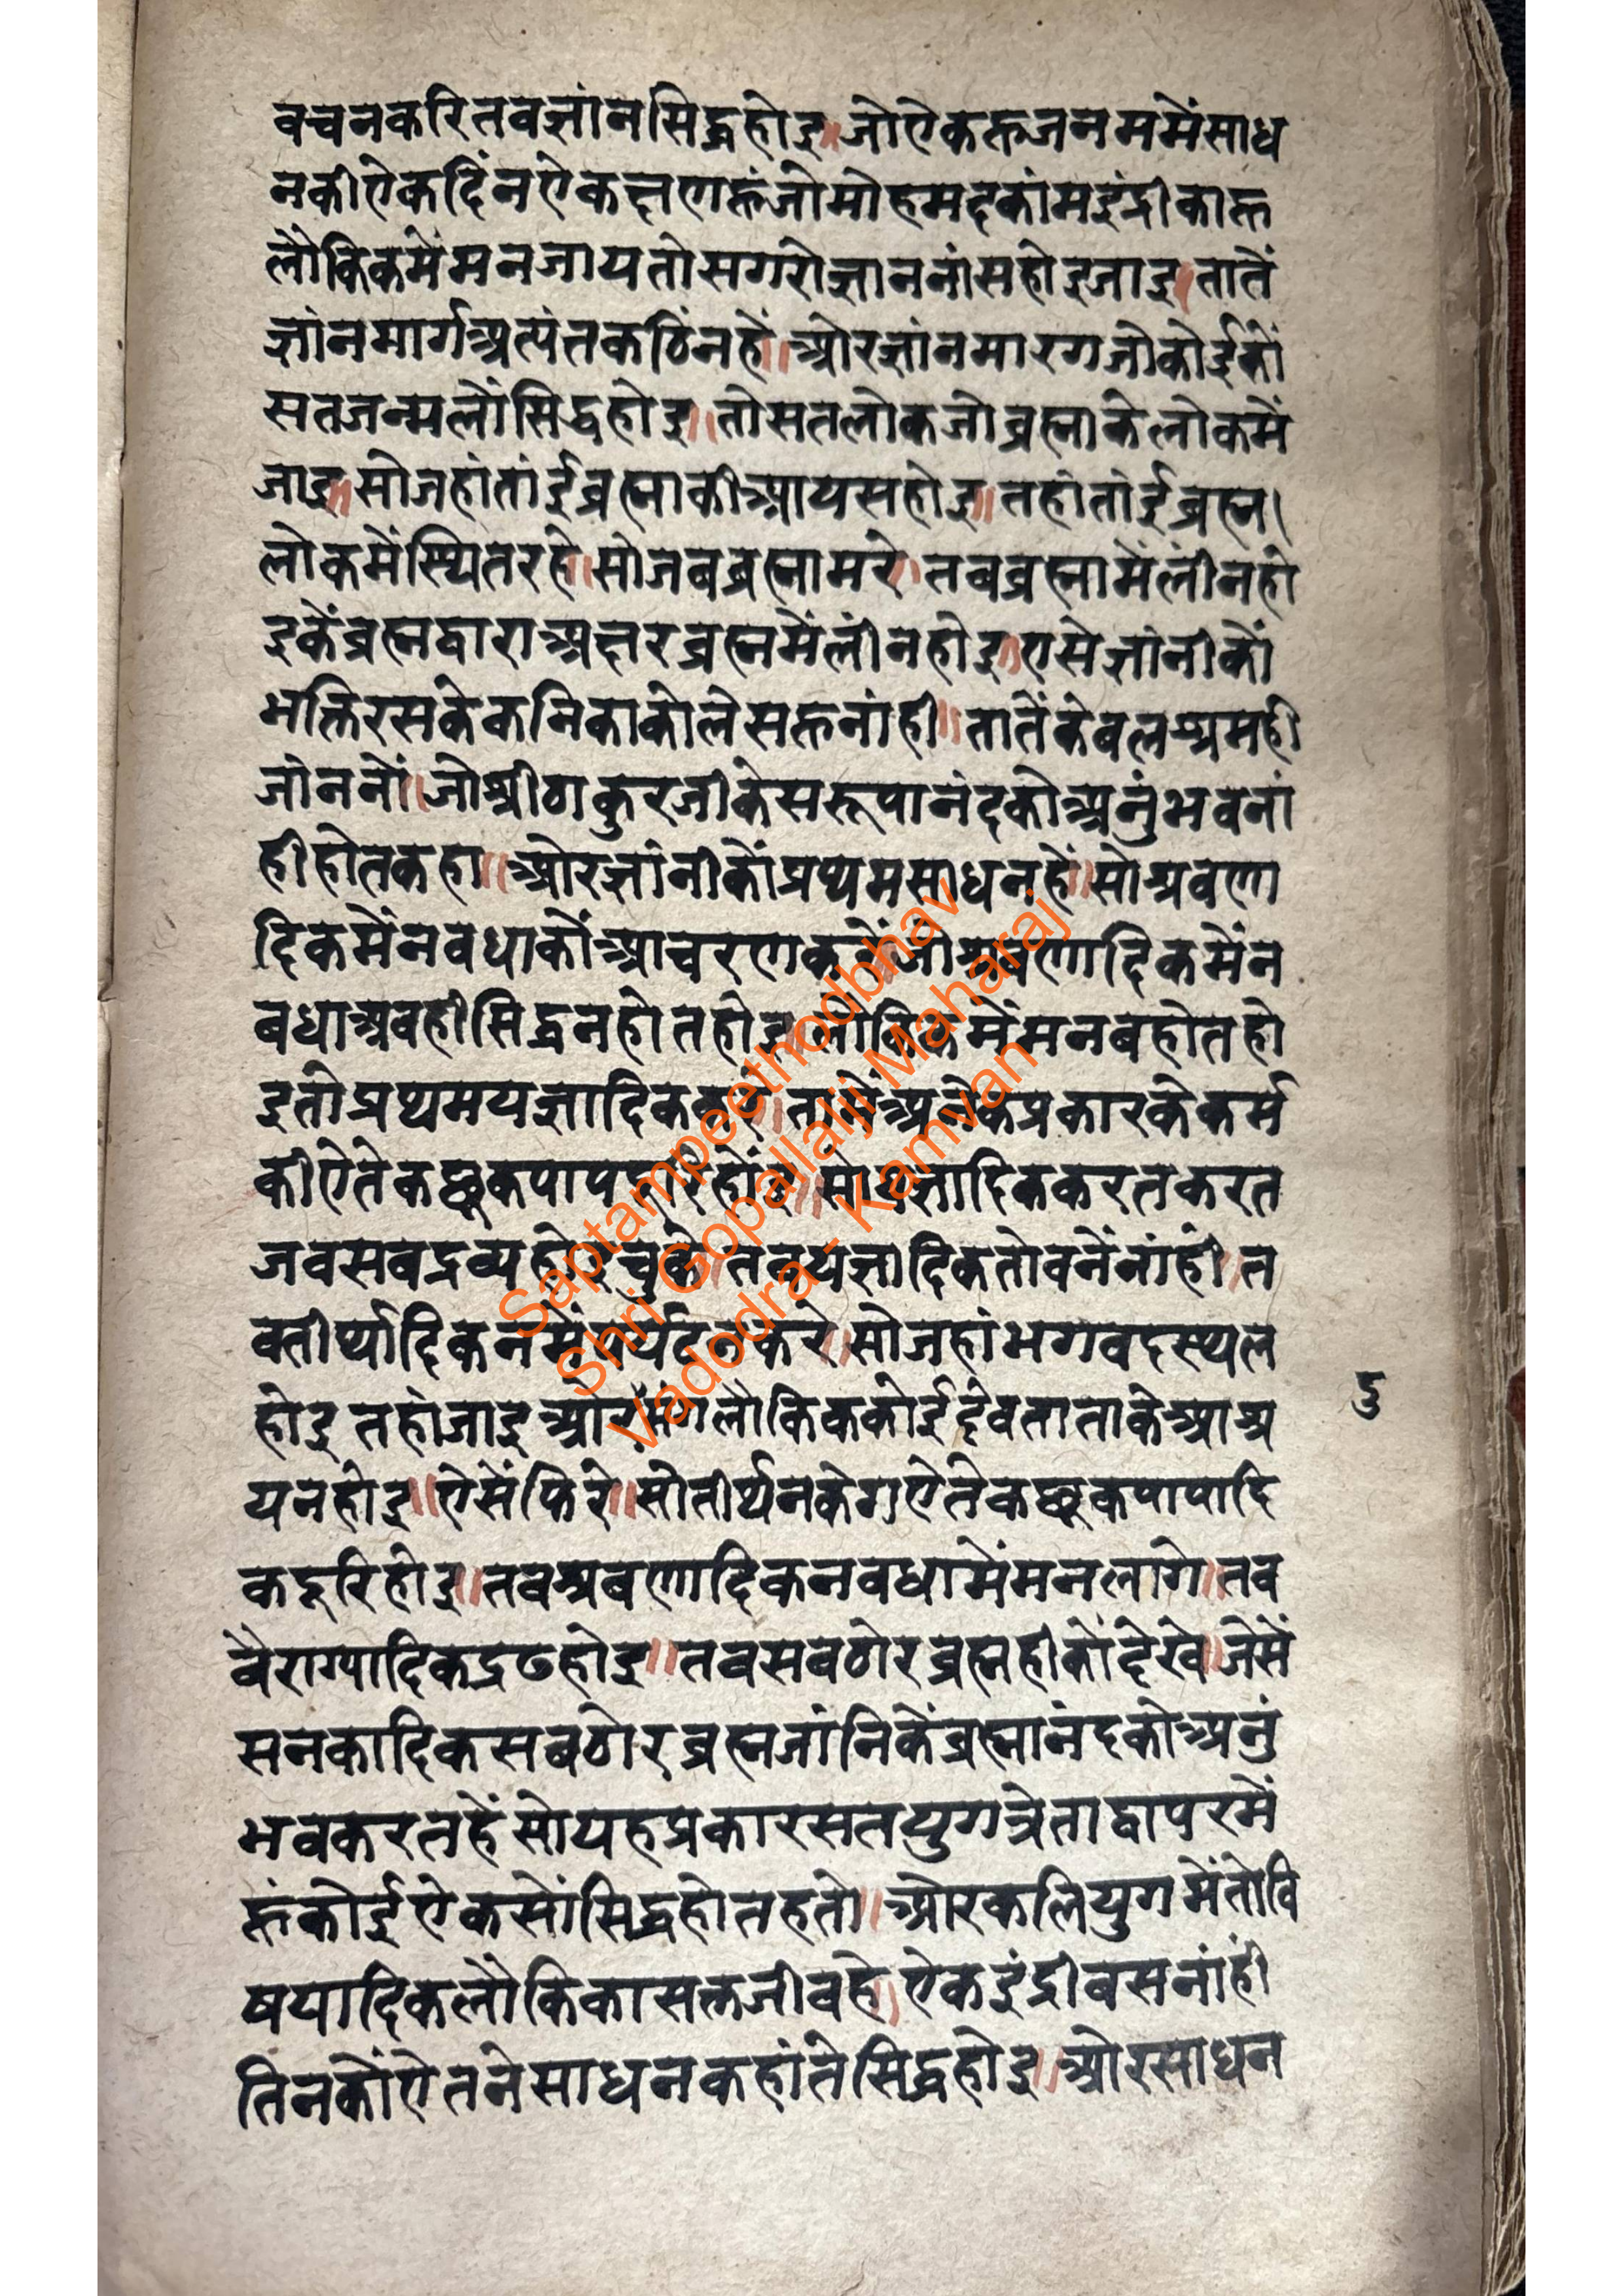 वचनकरितवज्ञांनसिद्धहोइ॥जोऐकहूजनममेंसाध
नकीऐकदिंनऐकक्षणहूंजोमोहमदकांमइंद्रीकाहू
लौकिकमेंमनजायतोसगरोज्ञाननांसहोइजाइ॥तातें
ज्ञांनमार्गअत्यंतकठिंनहें॥ओरज्ञांनमारगजोकोईकों
सतजन्मलोंसिद्धहोइ॥तोसतलोकजोब्रह्माकेलोकमें
जाइ॥सोजहांतांईब्रह्माकीआयसहोइ॥तहांतांईब्रह्म।
लोकमेंस्थितरहे॥सोजबब्रह्मामरे।तबब्रह्मामेंलींनहो
इकेंब्रह्मद्वाराअक्षरब्रह्ममेंलींनहोइ॥एसेज्ञांनीकों
भक्तिरसकेकनिकाकोलेसहूनांही॥तातेंकेवलश्रमही
जांननों॥जोश्रीठाकुरजीकेसरूपानंदकोअनुंभवनां
हीहोतकहा॥ओरज्ञांनीकोंप्रथमसाधनहें॥सोश्रवणा
दिकमेंनवधाकोंआचरणकरें॥जोश्रवणादिकमेंन
बधाअवहीसिद्धनहोतहोइ॥लौकिकमेंमनबहोतहो
इतोप्रथमयज्ञादिककरें॥तामेंअनेकप्रकारकेकर्म
कीऐतेकछुकपापदूरिहोंइ॥सोयज्ञादिककरतकरत
जवसबद्रव्यहोइचुके॥तबयज्ञादिकतोवनेंनांहीं॥त
वतीर्थादिकनमेंपर्यटनकरे॥सोजहांभगवदस्थल
होइतहांजाइओरमगलौकिककोईदेवताताकेआश्र
5
यनहोइ॥ऐसेंफिरे॥सोतीर्थनकेगऐतेकछूकपापादि
कदूरिहोइ॥तवश्रबणादिकनवधामेंमनलागे॥तव
वैराग्यादिकद्रढहोइ॥तवसवठोरब्रह्महीकोंदेखे॥जेसें
सनकादिकसबठोरब्रह्मजांनिकेंब्रह्मानंदकोअनुं
भवकरतहेंसोयहप्रकारसतयुगत्रेताद्वापरमें
हूंकोईऐकसोंसिद्धहोतहतो॥ओरकलियुगमेंतोवि
षयादिकलौकिकासक्तजीवहे॥ऐकइंद्रीबसनांहीं
तिनकोंऐतनेसाधनकहांतेसिद्धहोइ॥ओरसाधन
Saptampeethodbhav
Shri Gopallalji Maharaj
Vadodra - Kamvan